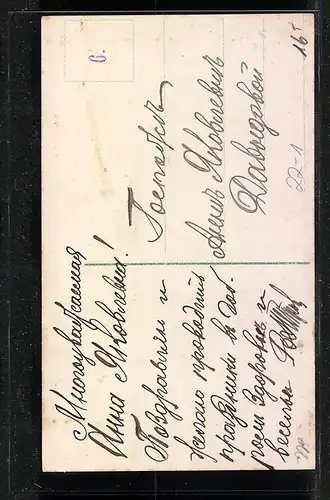 Многоуважаемая
Анна Яковлевна!
Поздравляем и
желаю проводить
праздники в доб-
ром здоровьи и
веселье
Госпожѣ
Аннѣ Яковлевнѣ
Давыдовой
6.
16
22-1